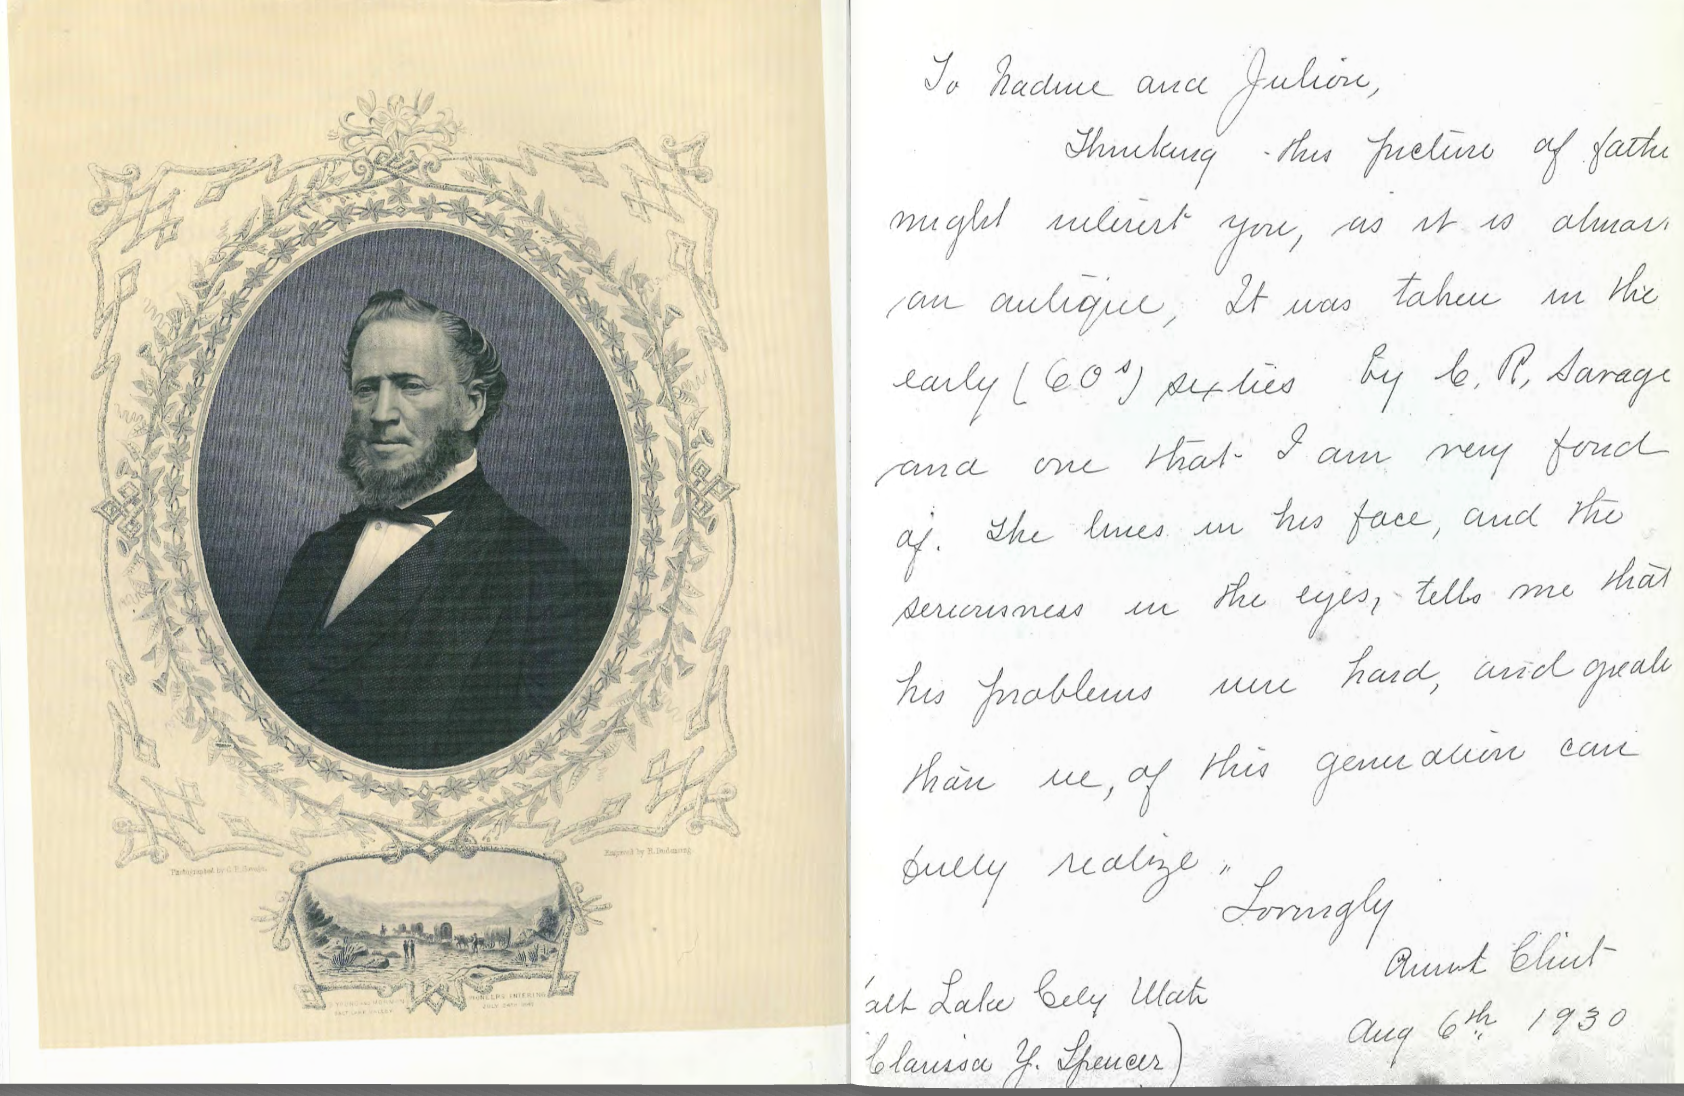 Photographed by C. R. Savage.
Engraved by
PIONEERS ENTERING
To Nadine and Julian,
Thinking this picture of fathe
might interest you, as it is almos
an antique, It was taken in the
early (60s) sixties by C. R. Savage
and one that I am very fond
of. The lines in his face, and the
seriousness in the eyes, tells me that
his problems were hard, and greate
than we, of this generation can
fully realize.
Lovingly
Aunt Clint
Aug 6th 1930
alt Lake City Utah
Clarissa Y. Spencer)